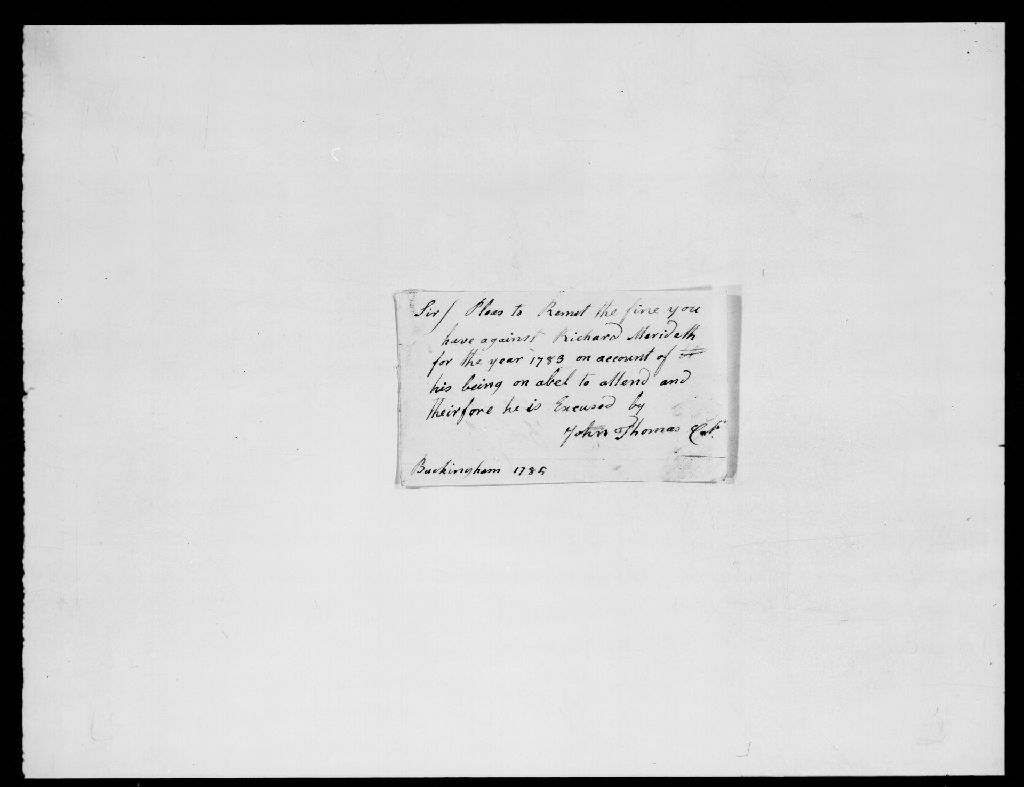 Sir/ Pleas to Remet the fine you
have against Richard Merideth
for the year 1783 on account of
his being on abel to attend and
theirfore he is Excused by
John Thomas Capt
Buckingham 1785